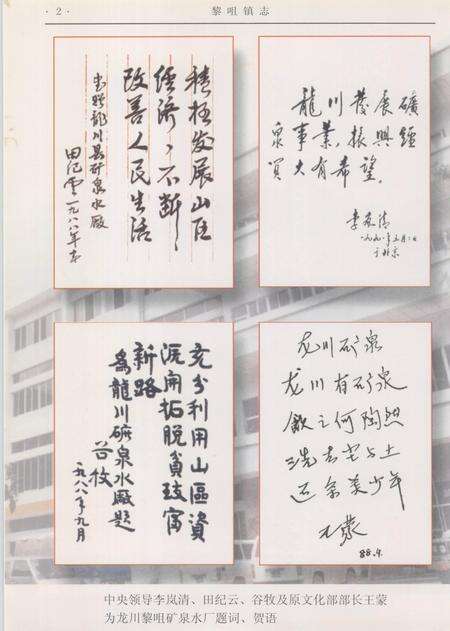 · 2 ·
黎咀镇志
积极发展山区
经济,不断
改善人民生活
书赠龙川县矿泉水厂
田纪云一九八八年
龍川發展礦
泉事業,振興經
濟大有希望。
李岚清
一九九一年五月
于北京
充分利用山區資
源開拓脱貧致富
新路
為龍川礦泉水廠題
谷牧
一九八八年九月
龙川矿泉
龙川有矿泉
飲之何陶然
洗去尘与土
还条美少年
王蒙
88.9.
中央领导李岚清、田纪云、谷牧及原文化部部长王蒙
为龙川黎咀矿泉水厂题词、贺语